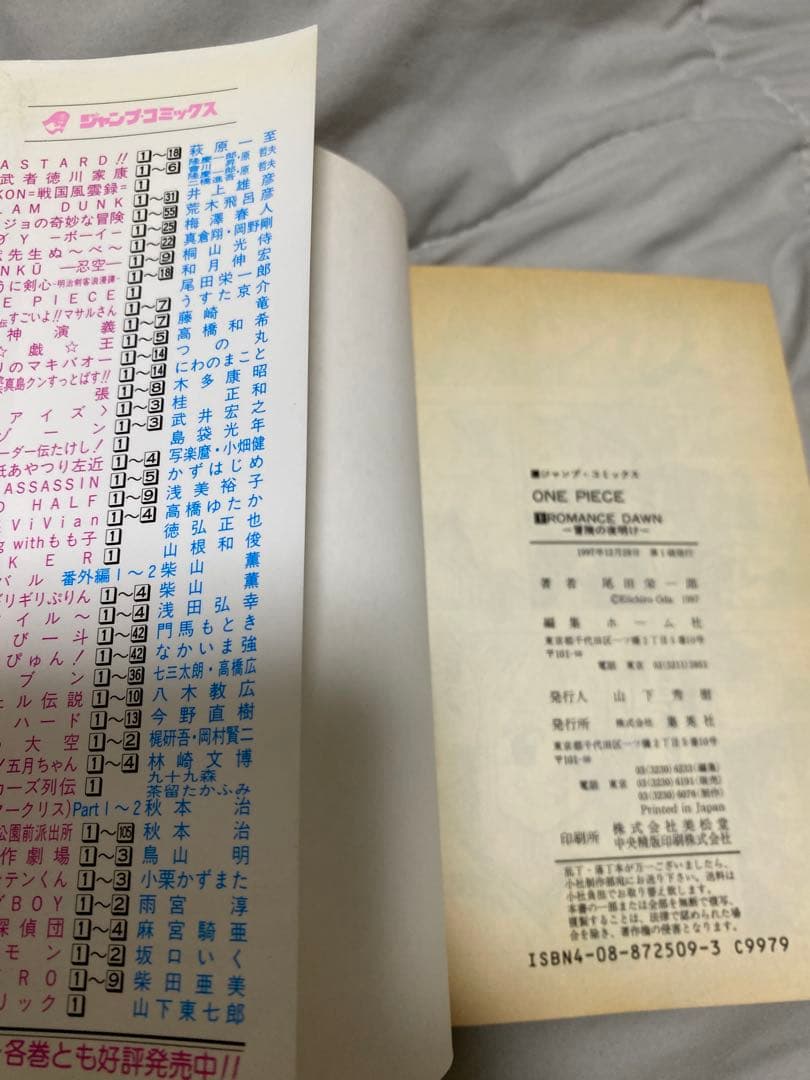 ジャンプ・コミックス
ASTARD!! 1〜18 萩原一至
武者徳川家康 1〜6 隆慶一郎・原哲夫
會川昇
KON=戦国風雲録= 1 隆慶一郎・原哲夫
三橋進吾
LAM DUNK 1〜31 井上雄彦
ジョの奇妙な冒険 1〜55 荒木飛呂彦
Y ーボーイー 1〜25 梅澤春人
先生ぬ〜べ〜 1〜22 真倉翔・岡野剛
NKŪ ―忍空― 1〜9 桐山光侍
うに剣心-明治剣客浪漫譚- 1〜18 和月伸宏
E PIECE 1 尾田栄一郎
すごいよ!!マサルさん 1〜7 うすた京介
神演義 1〜7 藤崎竜
☆戯☆王 1〜5 高橋和希
りのマキバオー 1〜14 つの丸
真島クンすっとばす!! 1〜14 にわのまこと
張 1〜8 木多康昭
アイズ〉 1〜3 桂正和
ゾーン 1〜3 武井宏之
ーダー伝たけし! 1 島袋光年
あやつり左近 1〜4 写楽麿・小畑健
ASSASSIN 1〜5 かずはじめ
HALF 1〜9 浅美裕子
ViVian 1〜4 高橋ゆたか
withもも子 1 徳弘正也
KER 1 山根和俊
バル 番外編1〜2 柴山薫
ギリギリぷりん 1〜4 柴山薫
イル〜 1〜4 浅田弘幸
び一斗 1〜42 門馬もとき
ぴゅん! 1〜42 なかいま強
ブン 1〜36 七三太朗・高橋広
ェル伝説 1〜10 八木教広
ハード 1〜13 今野直樹
大空 1〜2 梶研吾・岡村賢二
!五月ちゃん 1〜4 林崎文博
カーズ列伝 1 九十九森
茶留たかふみ
ークリス)Part1〜2 秋本治
公園前派出所 1〜105 秋本治
作劇場 1〜3 鳥山明
テンくん 1〜3 小栗かずまた
BOY 1〜2 雨宮淳
探偵団 1〜4 麻宮騎亜
モン 1〜2 坂口いく
RO 1〜9 柴田亜美
リック 1 山下東七郎
各巻とも好評発売中!!
■ジャンプ・コミックス
ONE PIECE
1 ROMANCE DAWN
―冒険の夜明け―
1997年12月29日 第1刷発行
著者 尾田栄一郎
©Eiichiro Oda 1997
編集 ホーム社
東京都千代田区一ツ橋2丁目5番10号
〒101-50
電話 東京 03(5211)2651
発行人 山下秀樹
発行所 株式会社 集英社
東京都千代田区一ツ橋2丁目5番10号
〒101-50
03(3230)6233(編集)
電話 東京 03(3230)6191(販売)
03(3230)6076(制作)
Printed in Japan
印刷所 株式会社美松堂
中央精版印刷株式会社
乱丁・落丁本が万一ございましたら、
小社制作部宛にお送り下さい。送料は
小社負担でお取り替え致します。
本書の一部または全部を無断で複写、
複製することは、法律で認められた場
合を除き、著作権の侵害となります。
ISBN4-08-872509-3 C9979